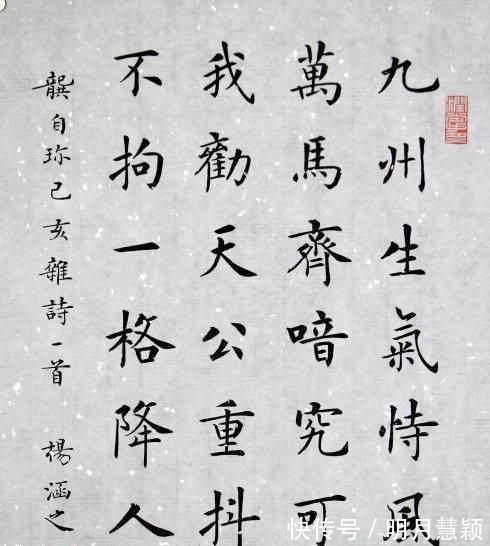 九州生氣恃風
萬馬齊喑究可
我勸天公重抖
不拘一格降人
龔自珍己亥雜詩一首 楊涵之
快传号 / 明月慧颖